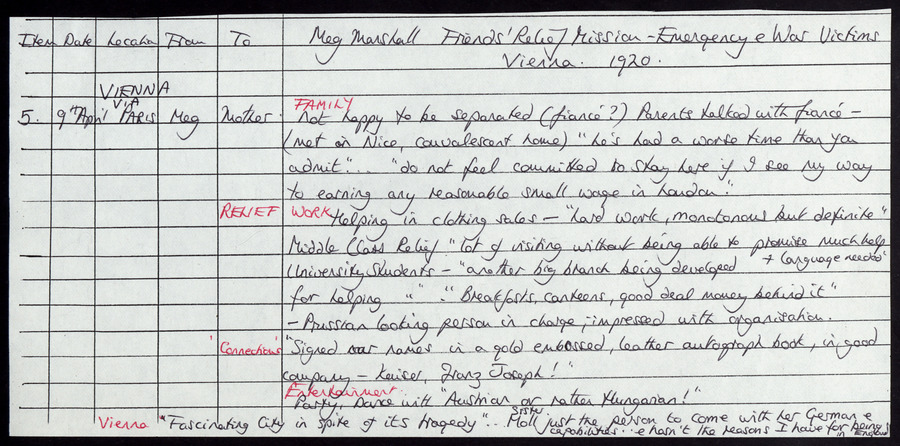 Item Date Location From To Meg Marshall Friends' Relief Mission - Emergency & War Victims
Vienna. 1920.
VIENNA
VIA
FAMILY
5. 9th April PARIS Meg Mother. Not happy to be separated (fiancé?) Parents talked with fiancé -
(met in Nice, convalescent home) "he's had a worse time than you
admit"... "do not feel committed to stay here if I see my way
to earning any reasonable small wage in London."
RELIEF WORK Helping in clothing sales - "hard work, monotonous but definite"
Middle Class Relief "lot of visiting without being able to promise much help
+ language needed"
University Students - "another big branch being developed
for helping " " " Breakfasts, canteens, good deal money behind it"
- Prussian looking person in charge, impressed with organisation.
'Connections' "Signed our names in a gold embossed, leather autograph book, in good
company - Keiser, Franz Joseph!"
Entertainment:
Party, Dance with "Austrian or rather Hungarian!"
Vienna "Fascinating City in spite of its tragedy"... Sister Moll just the person to come with her German &
capabilities... & hasn't the reasons I have for being in England